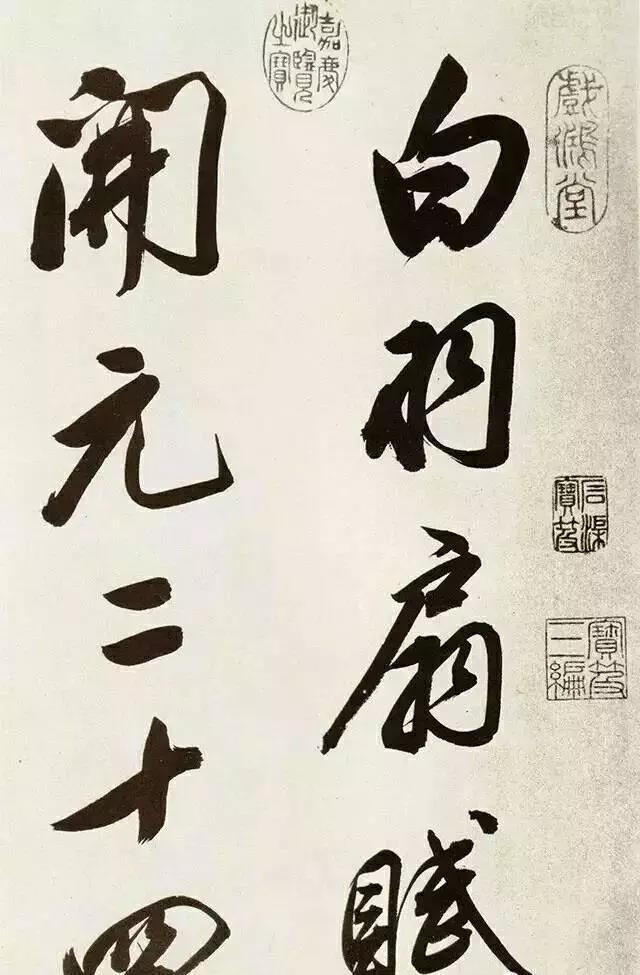 白羽扇賦
開元二十四
戲鴻堂
嘉慶御覽之寶
石渠寶笈
寶笈三編